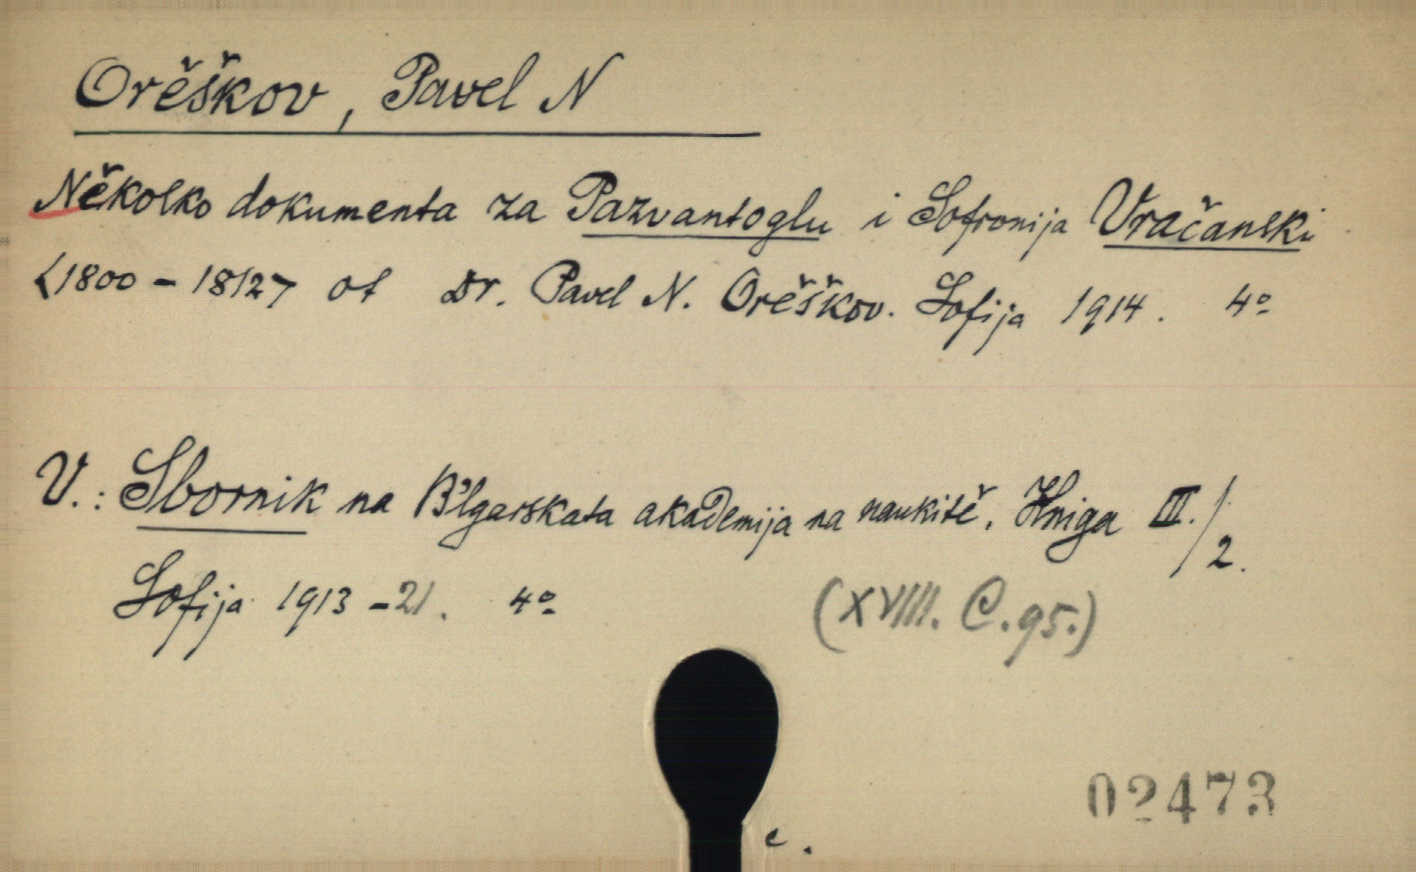 Orěškov, Pavel N
Několko dokumenta za Pazvantoglu i Sofronija Vračanski
<1800 - 1812> ot Dr. Pavel N. Orěškov. Sofija 1914. 4º
V.: Sbornik na B'lgarskata akademija na naukitě. Kniga III./2.
Sofija 1913 - 21. 4º
(XVIII. C. 95.)
02473
c.